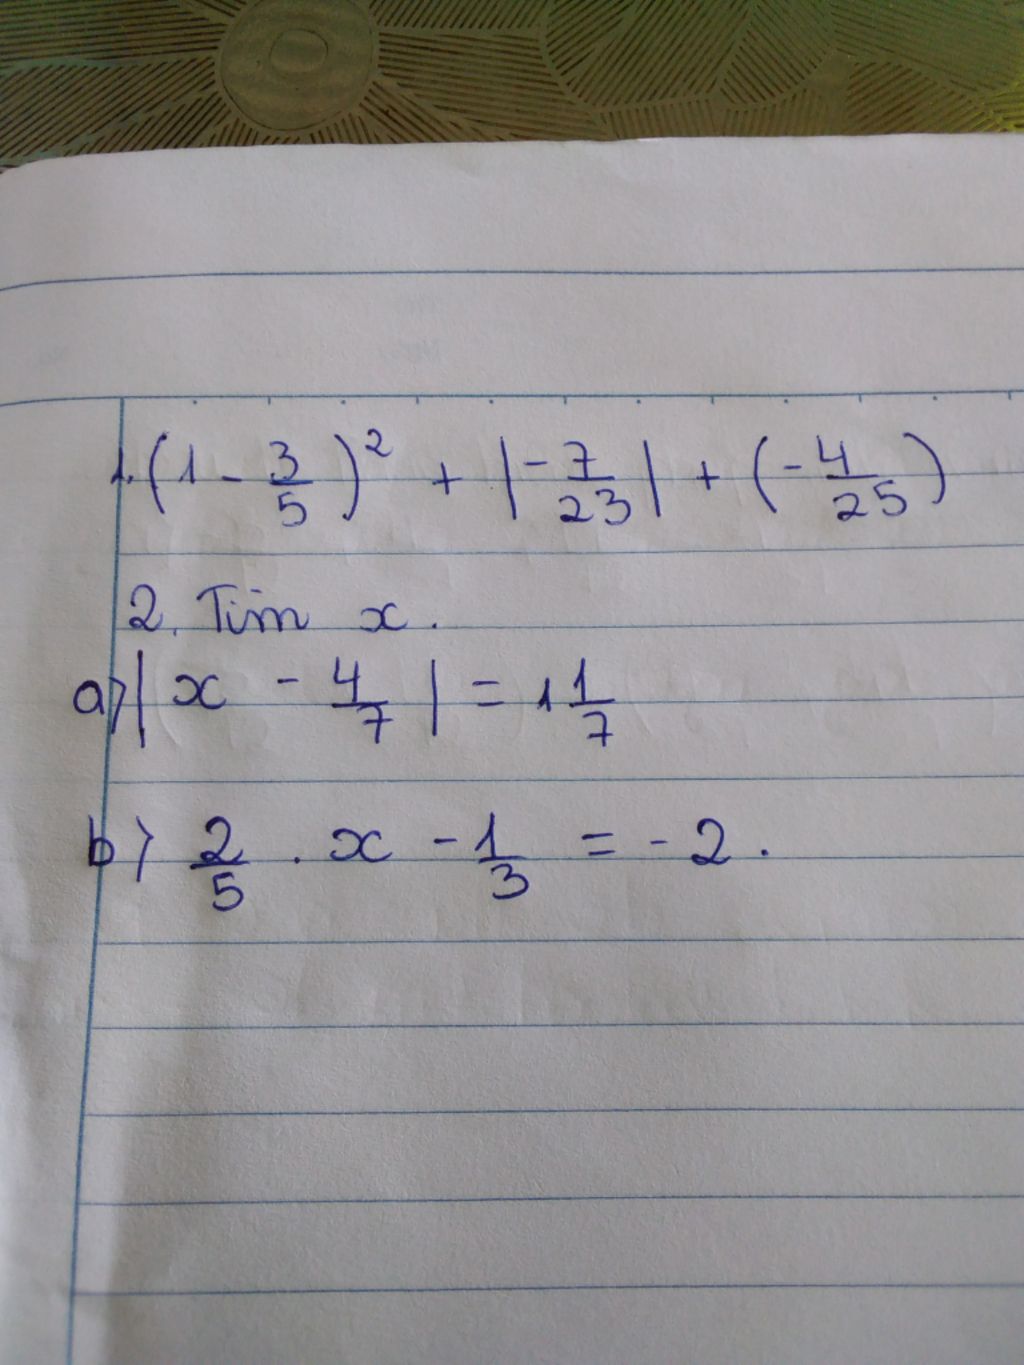 1. (1 - 3/5)² + |-7/23| + (-4/25)
2. Tìm x.
a) |x - 4/7| = 1 1/7
b) 2/5 . x - 1/3 = -2.